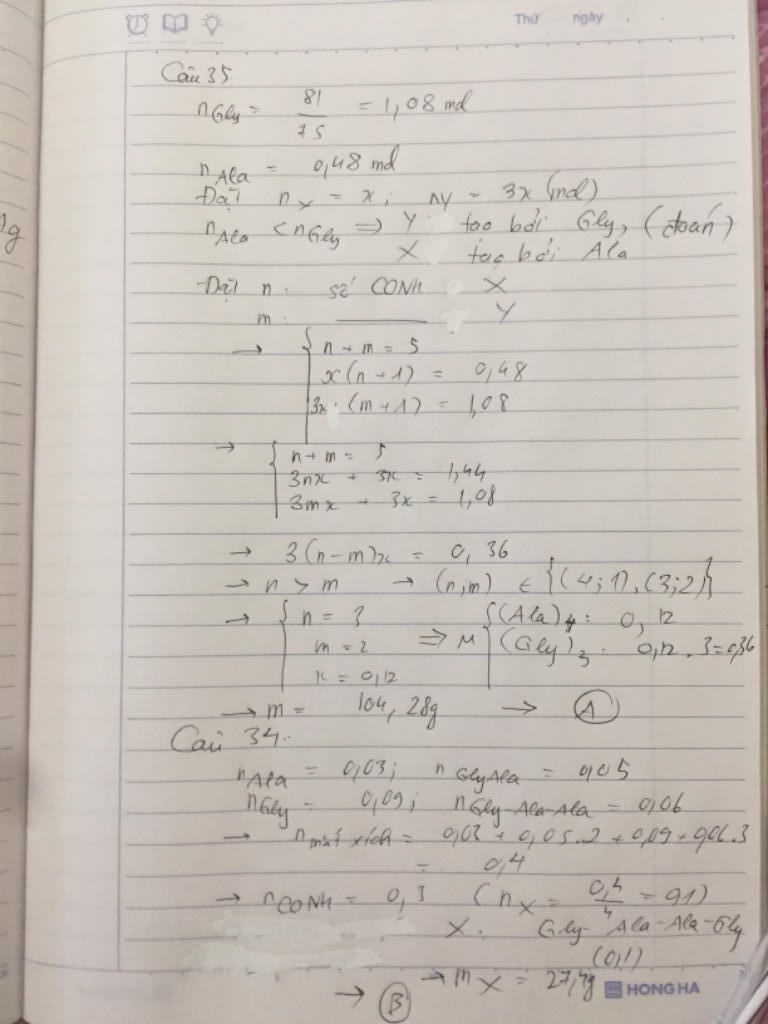 Thứ ngày
Câu 35
n Gly = 81/75 = 1,08 mol
n Ala = 0,48 mol
Đặt n X = x; nY = 3x (mol)
n Ala < n Gly ⇒ Y tạo bởi Gly, (đoán)
X tạo bởi Ala
Đặt n: số CONH X
m: ———— Y
→ { n + m = 5
x(n + 1) = 0,48
3x · (m + 1) = 1,08
→ { n + m = 5
3nx + 3x = 1,44
3mx + 3x = 1,08
→ 3(n-m)x = 0,36
→ n > m → (n,m) ∈ {(4;1), (3;2)}
→ { n = 3 { (Ala)4 : 0,12
m = 2 ⇒ M (Gly)3 : 0,12 . 3 = 0,36
x = 0,12
→ m = 104,28g → A
Câu 34.
n Ala = 0,03; n GlyAla = 0,05
n Gly = 0,09; n Gly-Ala-Ala = 0,06
→ n mắt xích = 0,03 + 0,05.2 + 0,09 + 0,06.3
= 0,4
→ n CONH = 0,3 (n X = 0,4/4 = 0,1)
X: Gly-Ala-Ala-Gly
(0,1)
→ m X = 27,4g
→ B
HONG HA